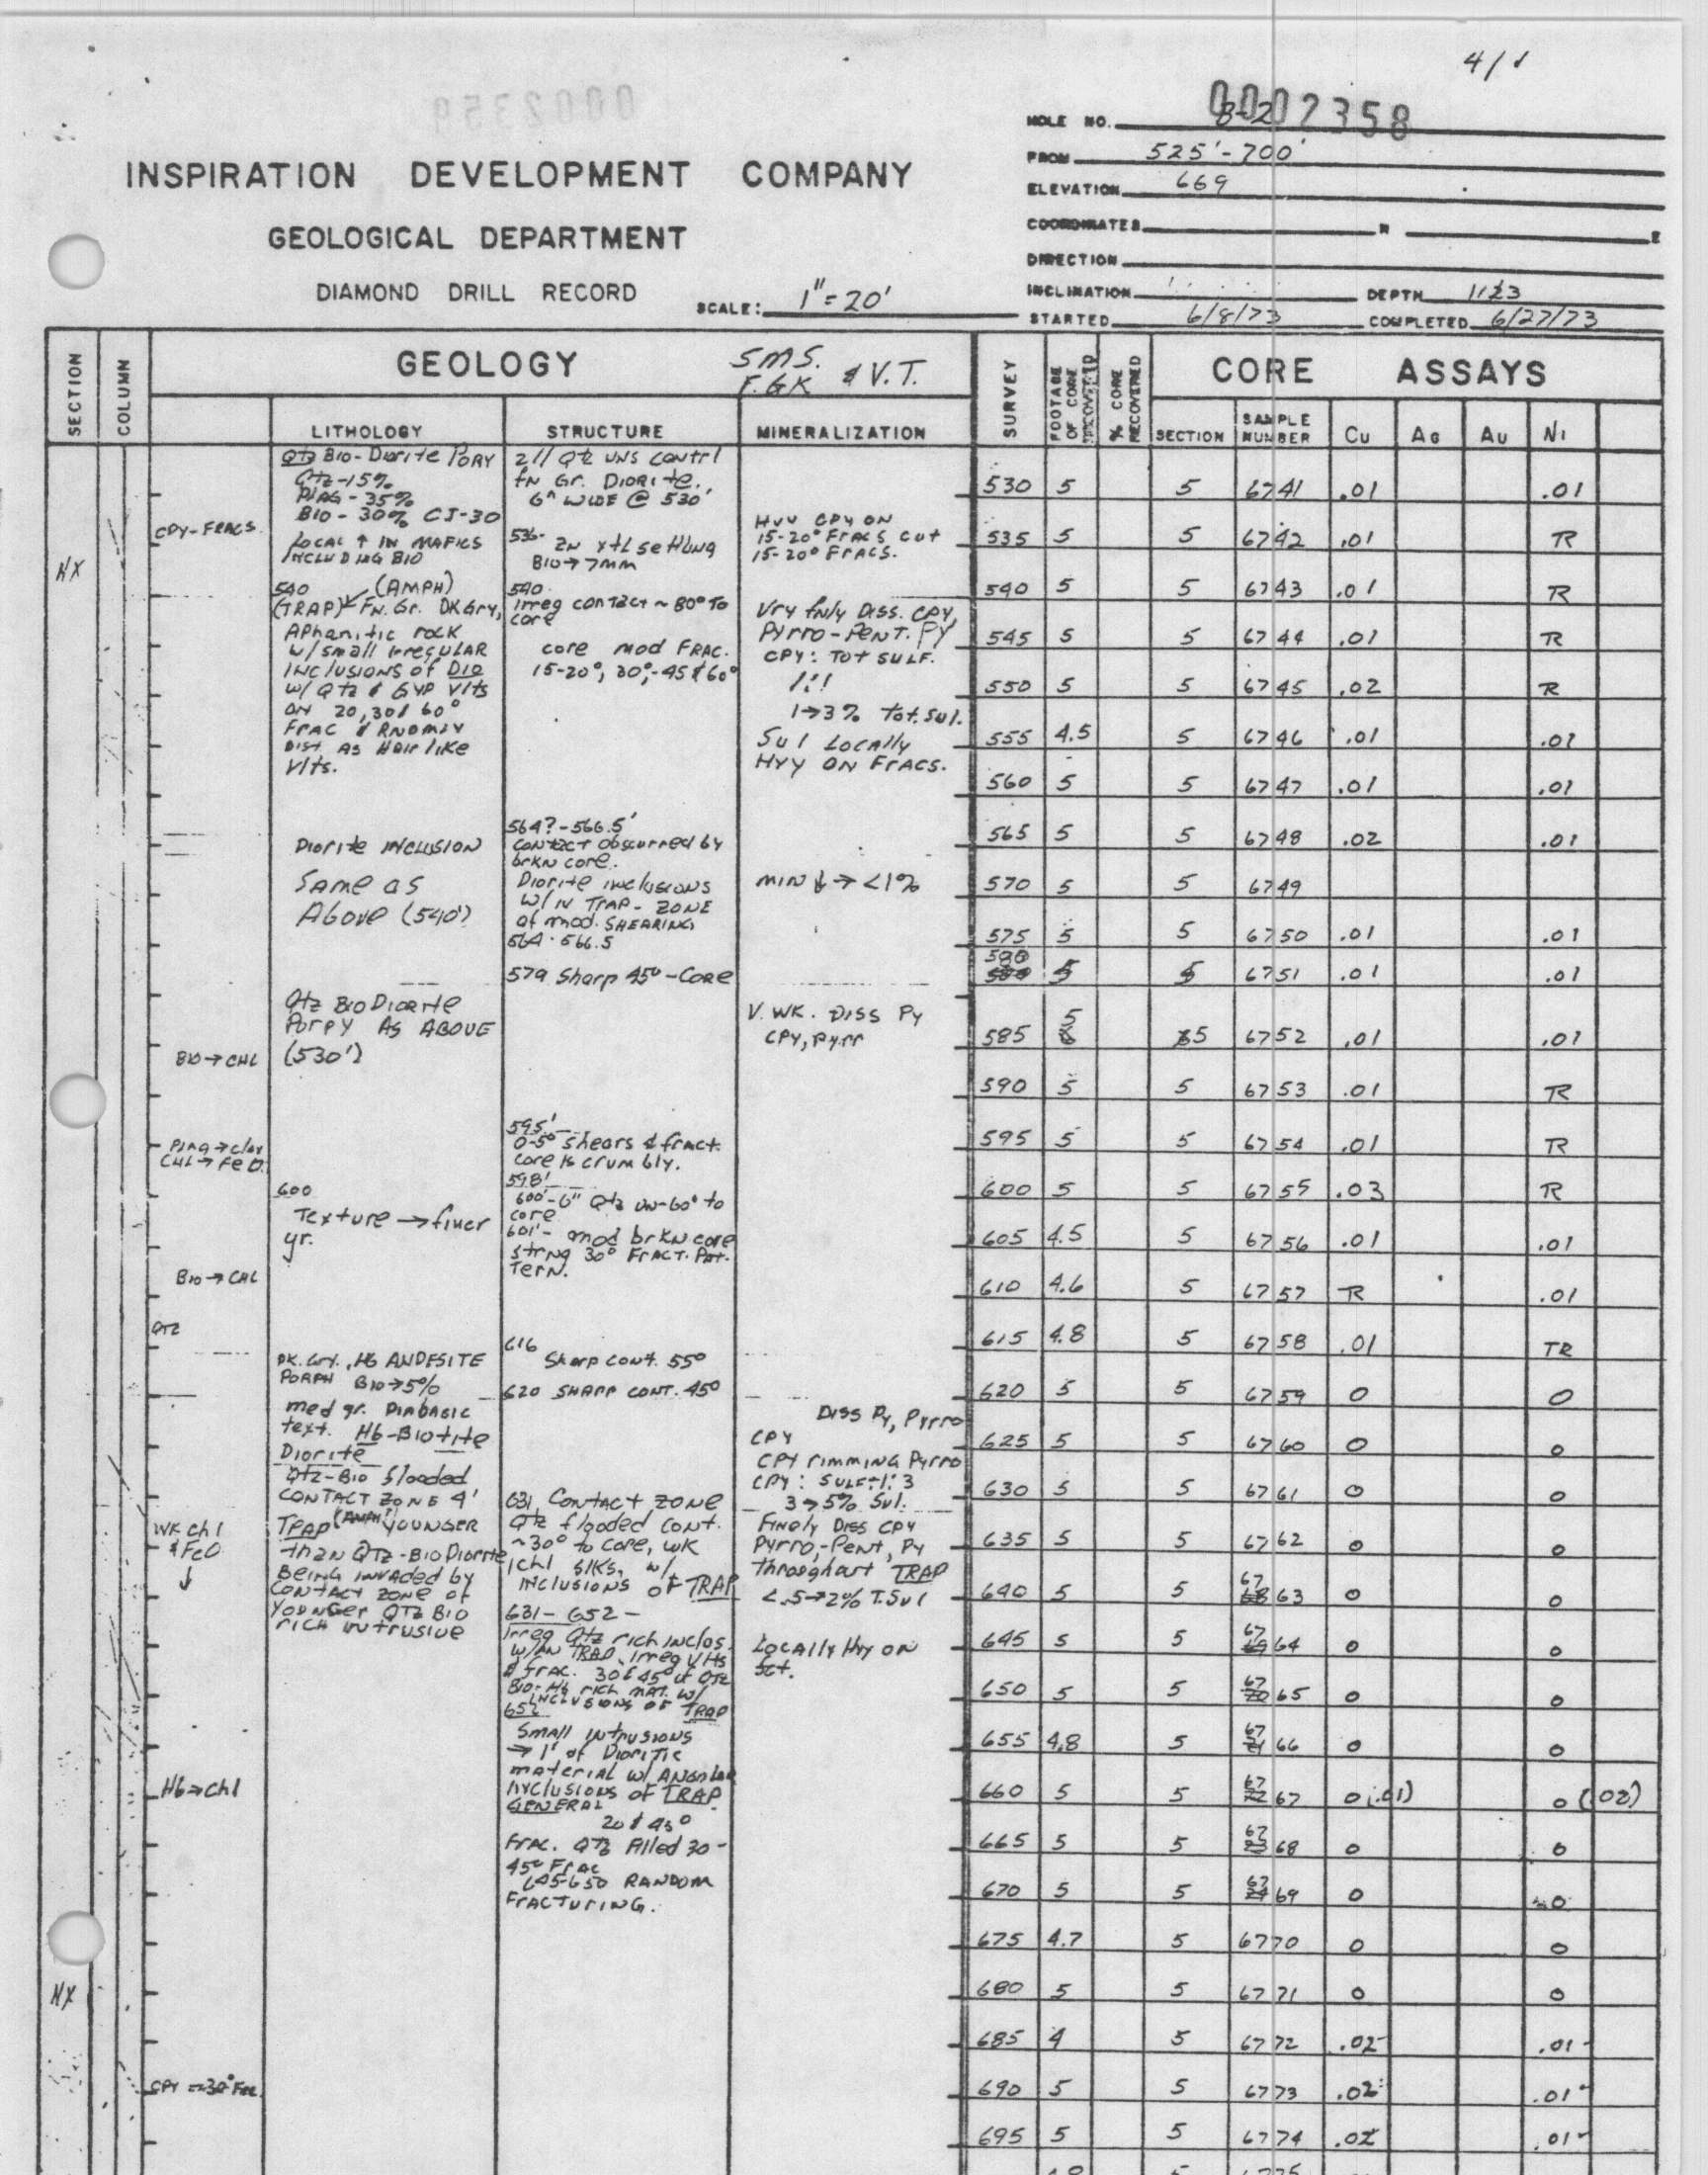 4/1
0002359
0002358
HOLE NO. B-2
FROM 525'-700'
INSPIRATION DEVELOPMENT COMPANY
ELEVATION 669
GEOLOGICAL DEPARTMENT
COORDINATES N E
DIRECTION
DIAMOND DRILL RECORD
SCALE: 1"=20'
INCLINATION DEPTH 1123
STARTED 6/8/73 COMPLETED 6/27/73
SECTION
COLUMN
GEOLOGY
SMS.
F.GK & V.T.
SURVEY
FOOTAGE OF CORE RECOVERED
% CORE RECOVERED
CORE ASSAYS
LITHOLOGY STRUCTURE MINERALIZATION
SECTION SAMPLE NUMBER Cu AG AU Ni
NX
NX
CPY-FRACS.
BIO→CHL
Plag→clay
CHL→FeO.
BIO→CHL
QTZ
WK Chl
& FeO
↓
Hb→Chl
Qtz BIO-Diorite PORY
Qtz-15%
PlAG-35%
BIO-30% CI-30
LOCAL ↑ IN MAFICS
INCLUDING BIO
540 (AMPH)
(TRAP) FN. Gr. DK Gry,
Aphanitic rock
w/small irregular
INCLUSIONS of DIO
w/ Qtz & GYP Vlts
ON 20,30& 60°
FrAC & RNDMLY
Dist. AS HAIr like
Vlts.
Diorite INCLUSION
Same as
Above (540')
Qtz BIO Diorite
Porpy AS ABOVE
(530')
600
Texture→finer
gr.
DK. Gry., Hb ANDESITE
PORPH BIO→5%
med gr. DIABASIC
text. Hb-Biotite
Diorite
Qtz-BIO flooded
CONTACT ZONE 4'
TRAP (AMPH) YOUNGER
than QTZ-BIO Diorite
Being invaded by
CONTACT ZONE of
YOUNGER QTZ BIO
rich intrusive
2 // Qtz VNS contrl
fN Gr. Diorite.
6" WIDE @ 530'
536- ZN xtl settling
BIO→7mm
540.
Irreg contact ~80° to
core
core mod FRAC.
15-20°, 30°,-45&60°
564?-566.5'
contact obscurred by
brkn core.
Diorite inclusions
w/IN TRAP-ZONE
of mod. SHEARING
564-566.5
579 Sharp 45°-Core
595'
0-5° shears & fract.
core is crumbly.
598'
600'-6" Qtz VN-60° to
core
601'- mod brKN core
strng 30° FRACT. Pat-
tern.
616
Sharp cont. 55°
620 SHARP CONT. 45°
631, Contact ZONE
Qtz flooded cont.
~30° to core, WK
chl slks, w/
INCLUSIONS of TRAP
631-652-
Irreg Qtz rich inclos.
w/IN TRAP, Irreg Vlts
& frac. 30&45° of QTZ
BIO-Hb rich mat. w/
INCLUSIONS OF TRAP
652
Small intrusions
→1' of Dioritic
material w/ Angular
INCLUSIONS of TRAP
GENERAL
20 & 45°
Frac. QTZ filled 30-
45° FRAC
645-650 RANDOM
FRACTURING.
Hvy CPY ON
15-20° FRACS cut
15-20° FRACS.
Vry fnly Diss. CPY,
Pyrro-Pent. PY
CPY: Tot SULF.
1:1
1→3% Tot. Sul.
Sul Locally
Hvy ON FrACS.
MIN ↓→<1%
V. WK. DISS Py
CPY, Pyrr
DISS Py, Pyrro
CPY
CPY rimming Pyrro
CPY: SULF-1:3
3→5% Sul.
Finely Diss CPY
Pyrro,-Pent, Py
Throughout TRAP
<.5→2% T.Sul
Locally Hvy ON
fct.
530 5 5 6741 .01 .01
535 5 5 6742 .01 TR
540 5 5 6743 .01 TR
545 5 5 6744 .01 TR
550 5 5 6745 .02 TR
555 4.5 5 6746 .01 .01
560 5 5 6747 .01 .01
565 5 5 6748 .02 .01
570 5 5 6749
575 5 5 6750 .01 .01
580 5 5 6751 .01 .01
585 5 5 6752 .01 .01
590 5 5 6753 .01 TR
595 5 5 6754 .01 TR
600 5 5 6755 .03 TR
605 4.5 5 6756 .01 .01
610 4.6 5 6757 TR .01
615 4.8 5 6758 .01 TR
620 5 5 6759 0 0
625 5 5 6760 0 0
630 5 5 6761 0 0
635 5 5 6762 0 0
640 5 5 6763 0 0
645 5 5 6764 0 0
650 5 5 6765 0 0
655 4.8 5 6766 0 0
660 5 5 6767 0(.01) 0(.02)
665 5 5 6768 0 0
670 5 5 6769 0 0
675 4.7 5 6770 0 0
680 5 5 6771 0 0
685 4 5 6772 .02 .01
690 5 5 6773 .02 .01
695 5 5 6774 .02 .01